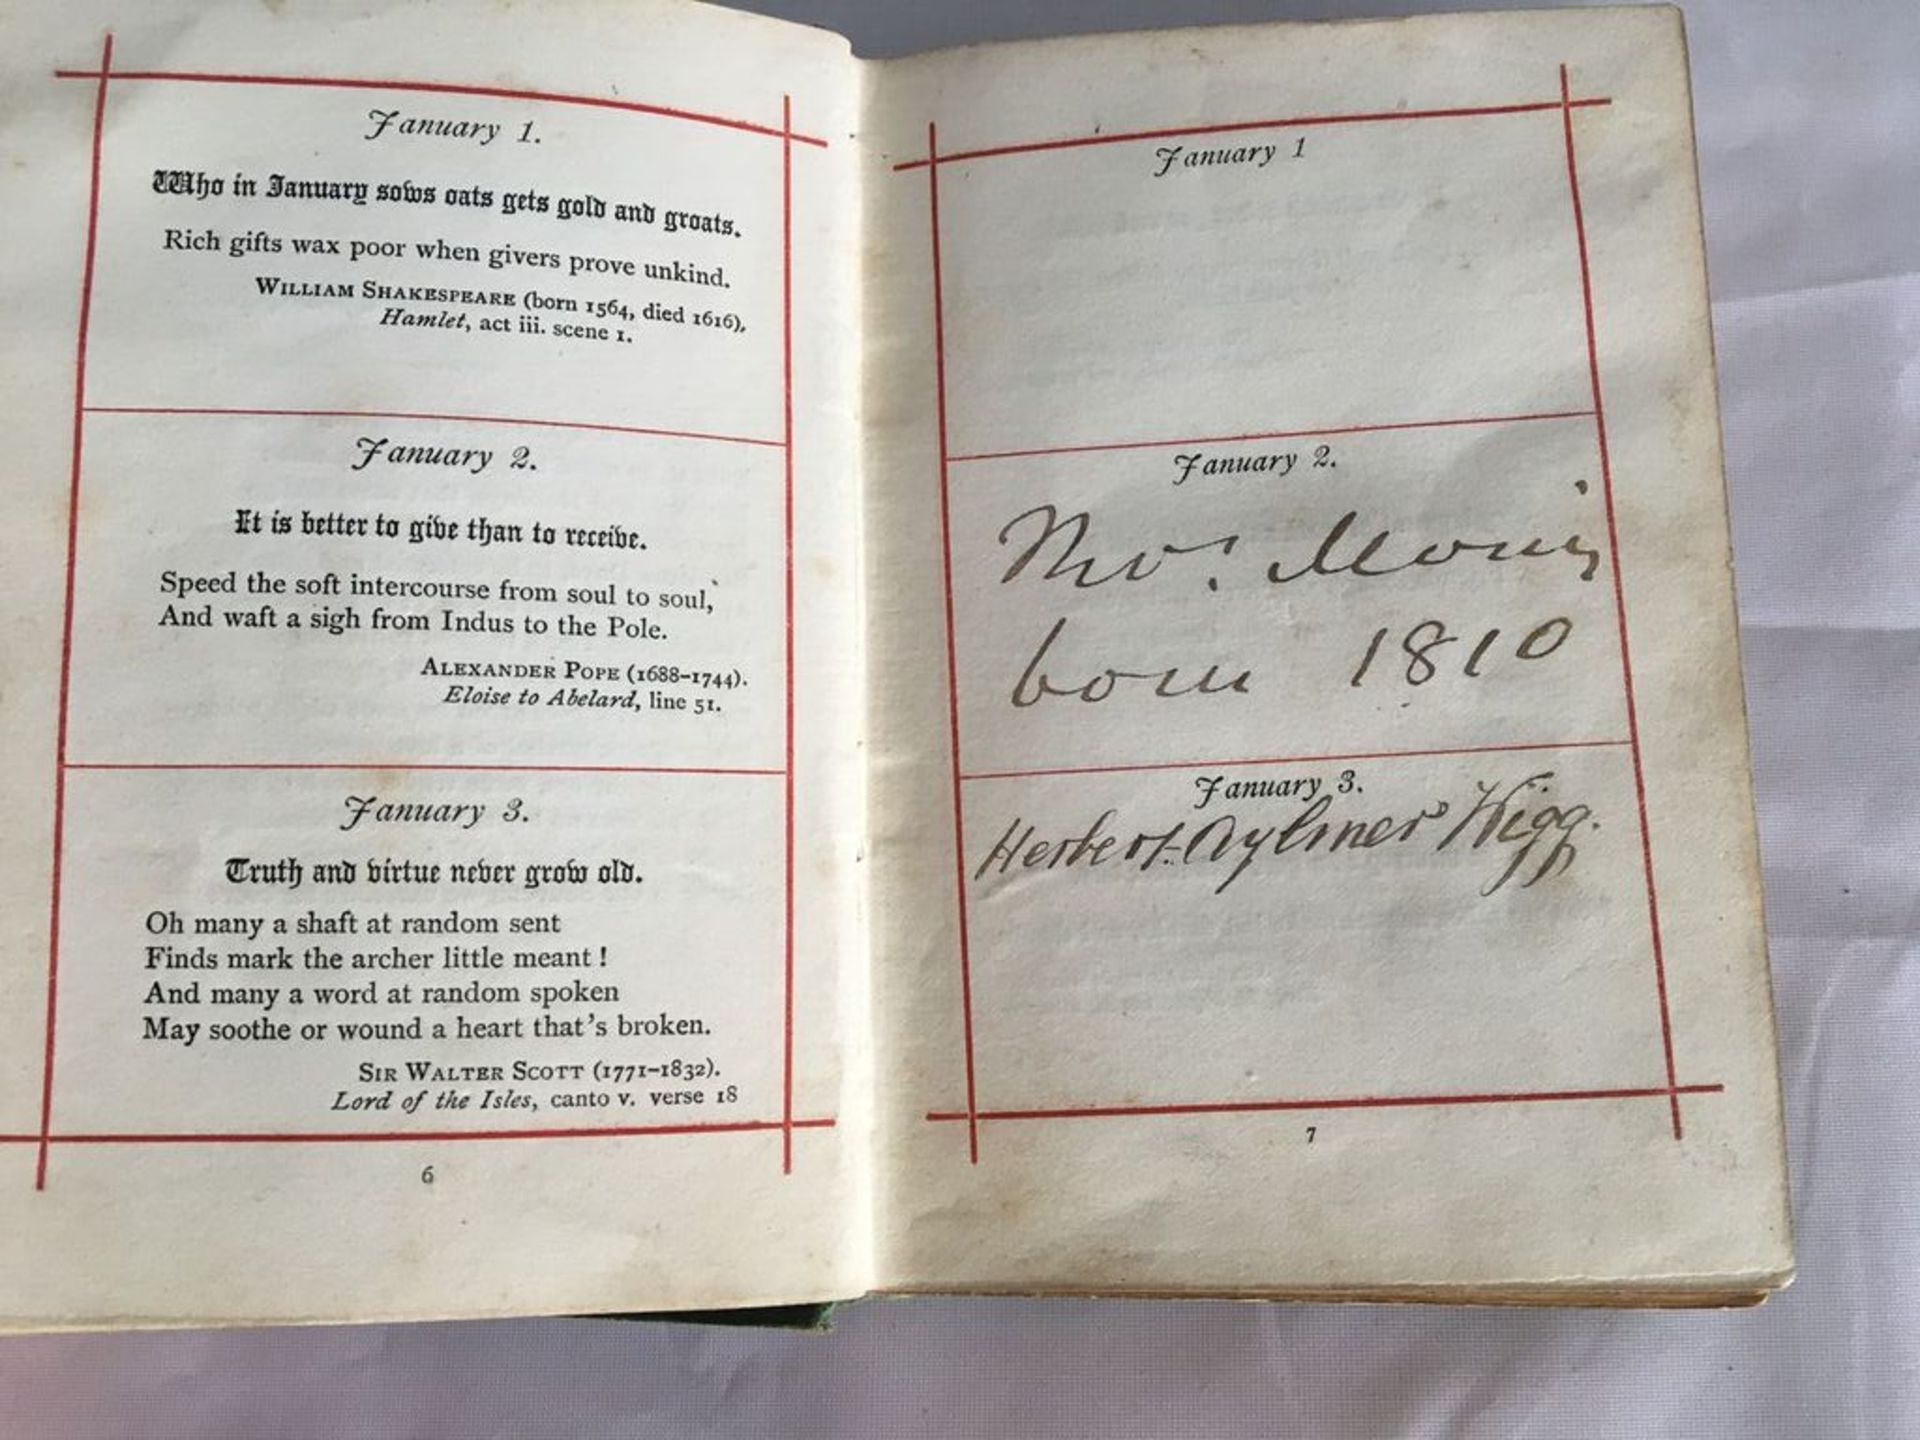 January 1.
Who in January sows oats gets gold and groats.
Rich gifts wax poor when givers prove unkind.
WILLIAM SHAKESPEARE (born 1564, died 1616),
Hamlet, act iii. scene 1.
January 2.
It is better to give than to receive.
Speed the soft intercourse from soul to soul,
And waft a sigh from Indus to the Pole.
ALEXANDER POPE (1688–1744).
Eloise to Abelard, line 51.
January 3.
Truth and virtue never grow old.
Oh many a shaft at random sent
Finds mark the archer little meant!
And many a word at random spoken
May soothe or wound a heart that's broken.
SIR WALTER SCOTT (1771–1832).
Lord of the Isles, canto v. verse 18
6
January 1
January 2.
Thos.
born 1810
January 3.
Herbert Aylmer Wigg.
7